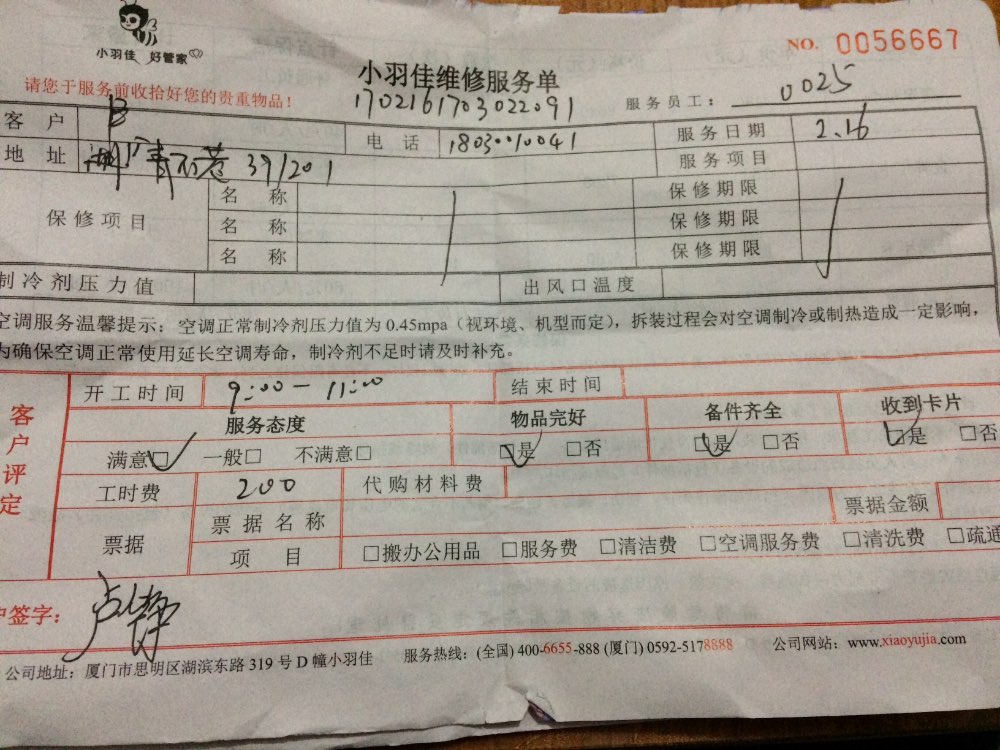 小羽佳 好管家
NO. 0056667
请您于服务前收拾好您的贵重物品！
小羽佳维修服务单
1702161703022091
服务员工： 0025
客 户
电 话 18030010041
服务日期 2.16
地 址 39/201
服务项目
保修项目
名 称 保修期限
名 称 保修期限
名 称 保修期限
制冷剂压力值 出风口温度
空调服务温馨提示：空调正常制冷剂压力值为 0.45mpa（视环境、机型而定），拆装过程会对空调制冷或制热造成一定影响，
为确保空调正常使用延长空调寿命，制冷剂不足时请及时补充。
客户评定
开工时间 9:00-11:00 结束时间
服务态度 物品完好 备件齐全 收到卡片
满意□ 一般□ 不满意□ □是 □否 □是 □否 □是 □否
工时费 200 代购材料费
票据 票据名称 票据金额
项 目 □搬办公用品 □服务费 □清洁费 □空调服务费 □清洗费 □疏通
户签字： 卢静
公司地址：厦门市思明区湖滨东路 319 号 D 幢小羽佳 服务热线：(全国) 400-6655-888 (厦门) 0592-5178888 公司网站：www.xiaoyujia.com